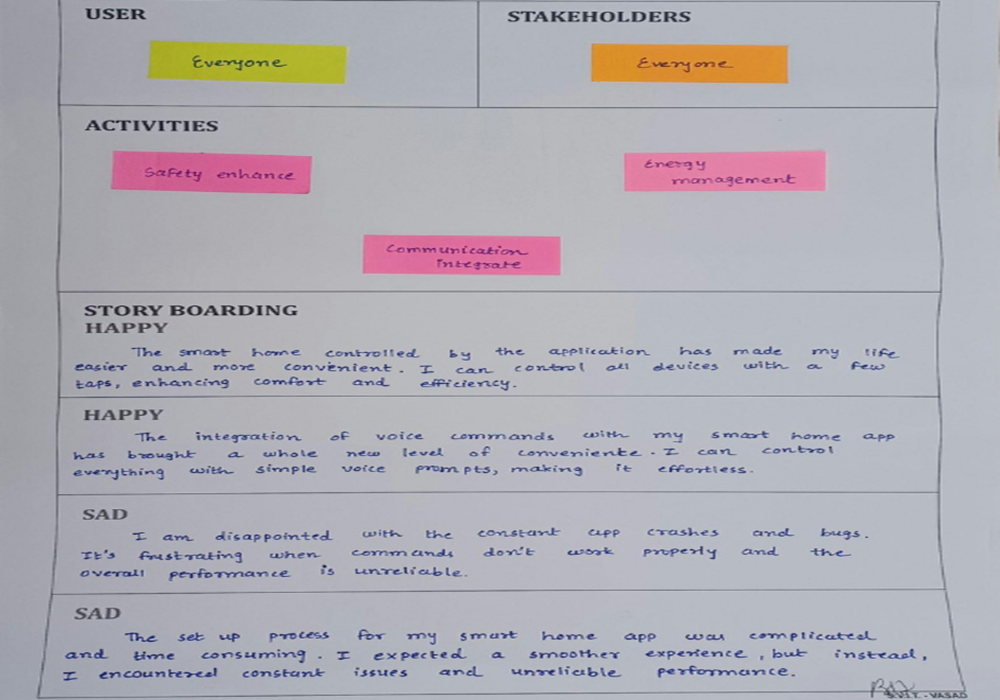 USER
STAKEHOLDERS
Everyone
Everyone
ACTIVITIES
Safety enhance
Energy
management
Communication
integrate
STORY BOARDING
HAPPY
The smart home controlled by the application has made my life
easier and more convenient. I can control all devices with a few
taps, enhancing comfort and efficiency.
HAPPY
The integration of voice commands with my smart home app
has brought a whole new level of conveniente. I can control
everything with simple voice prompts, making it effortless.
SAD
I am disappointed with the constant app crashes and bugs.
It's frustrating when commands don't work properly and the
overall performance is unreliable.
SAD
The set up process for my smart home app was complicated
and time consuming. I expected a smoother experience, but instead,
I encountered constant issues and unreliable performance.
- VASAD